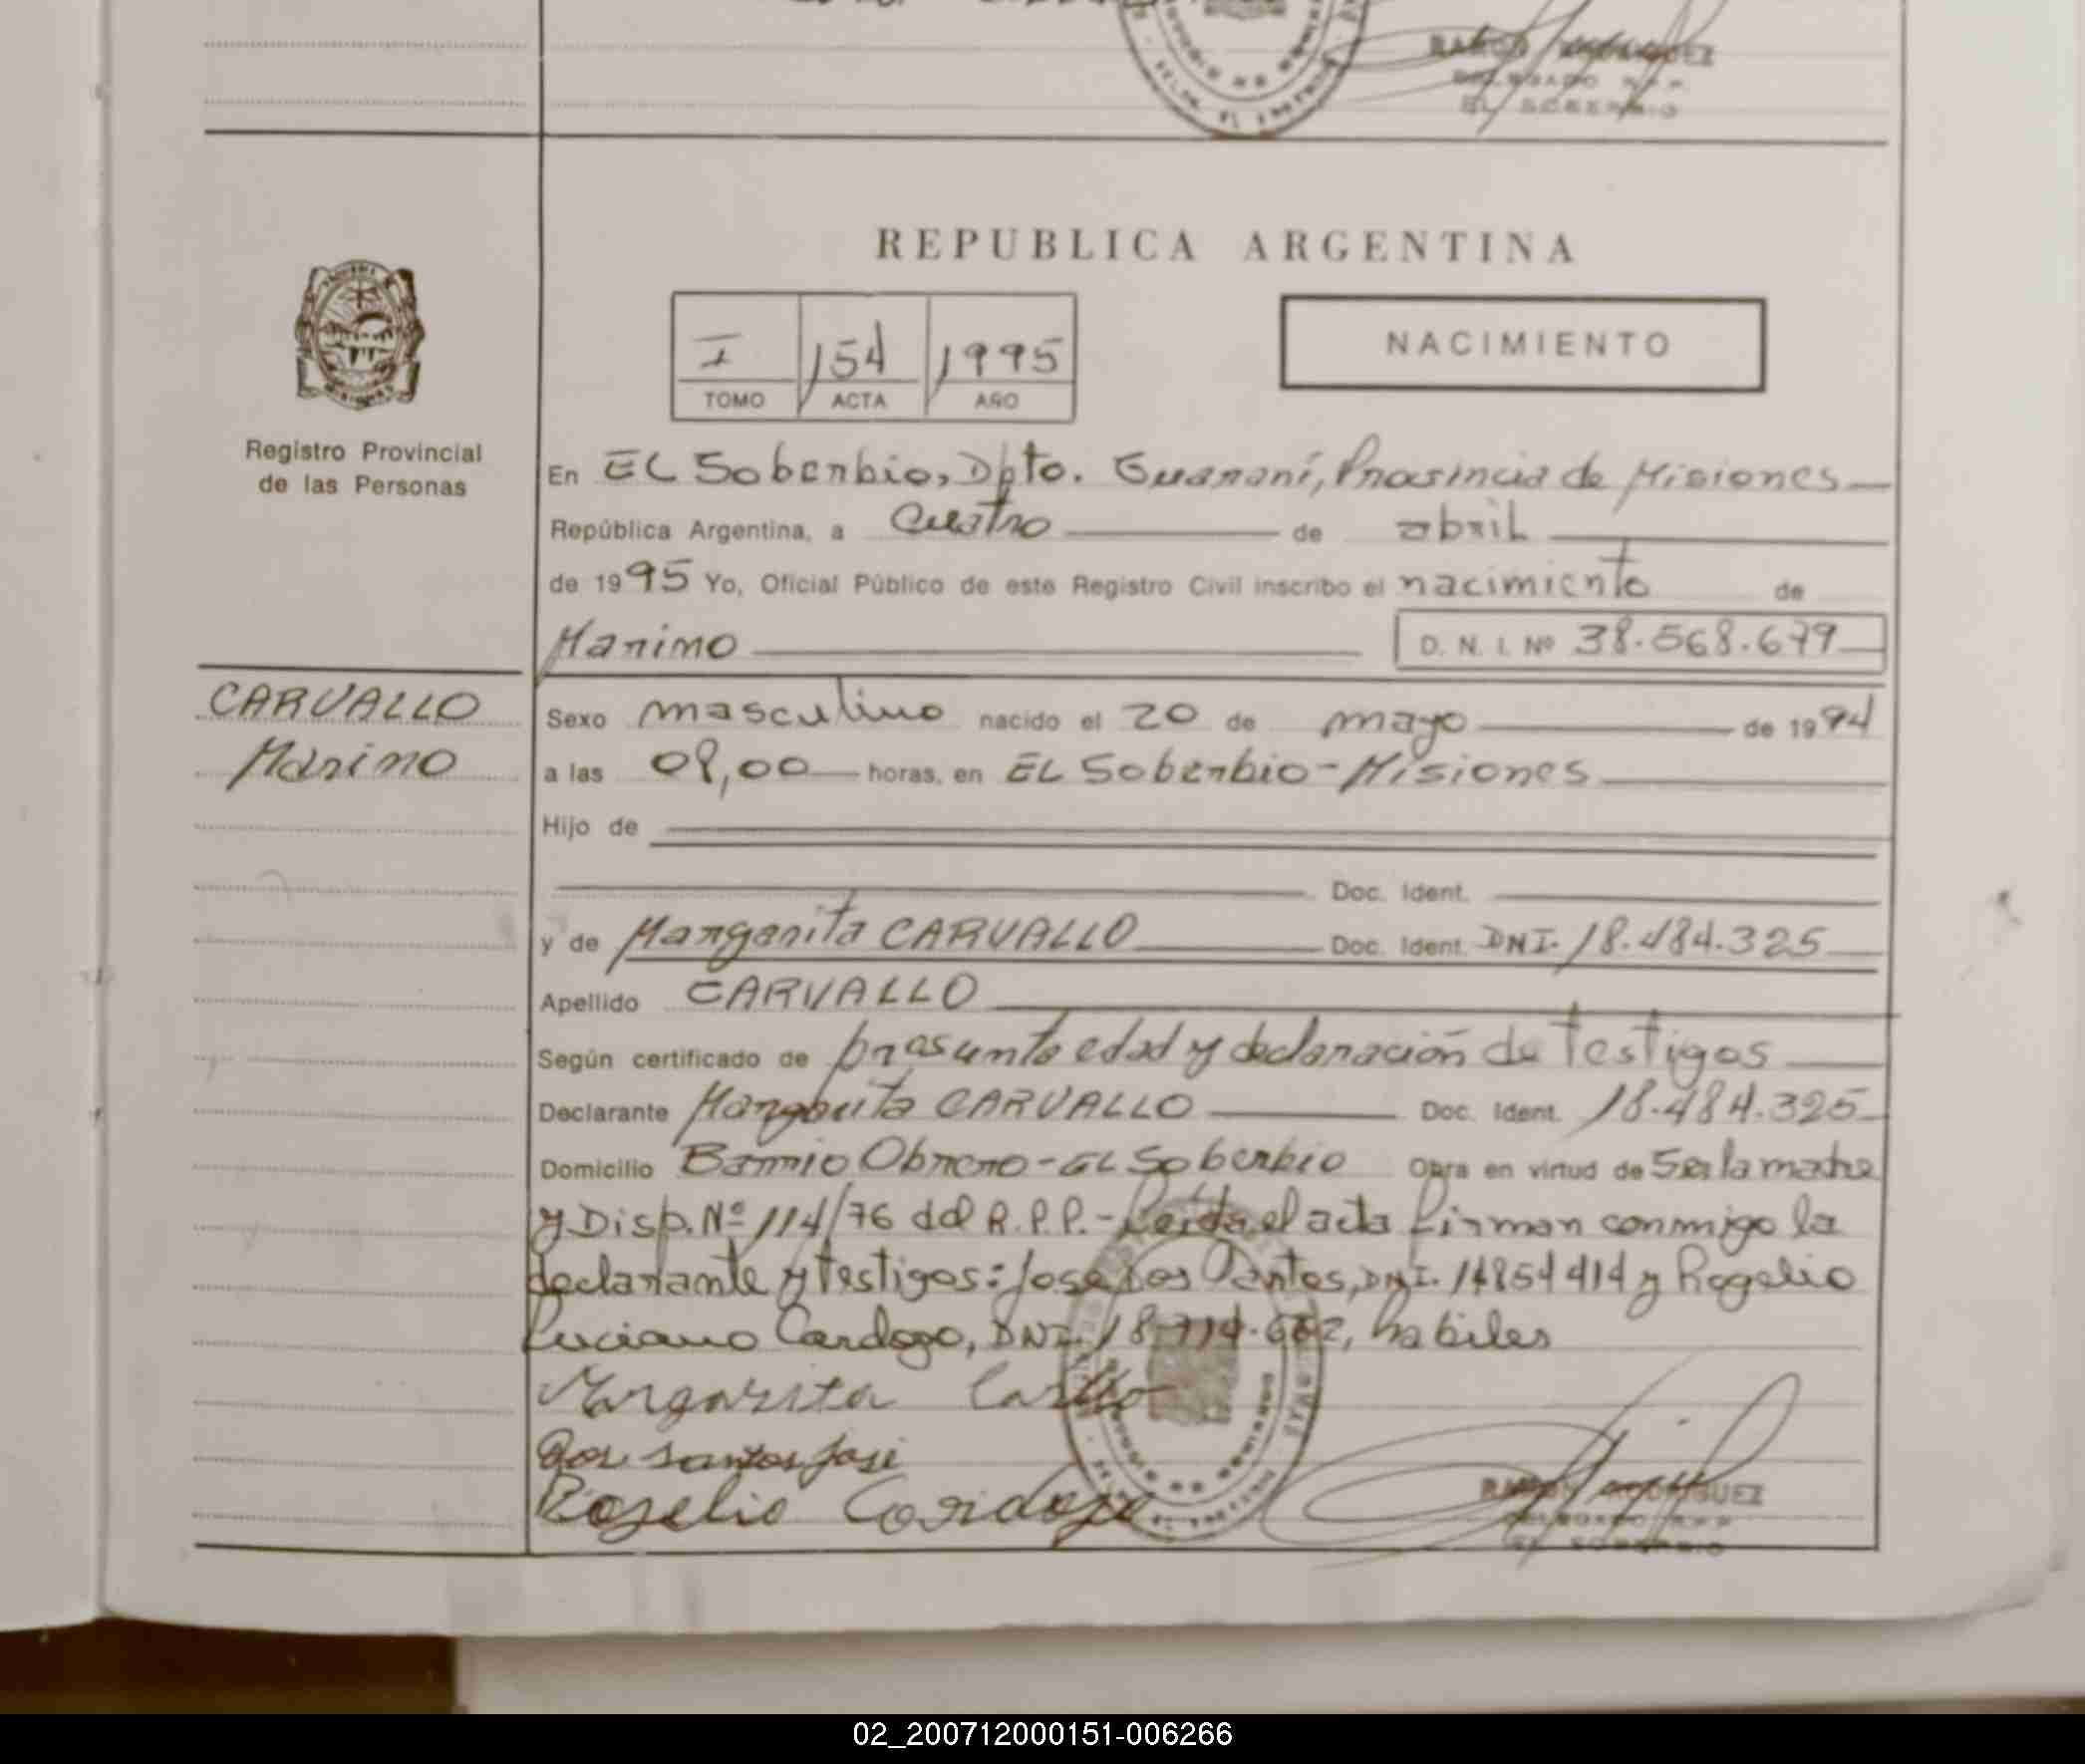 REPUBLICA ARGENTINA
I 154 1995
TOMO ACTA AÑO
NACIMIENTO
Registro Provincial
de las Personas
En EL Soberbio, Dpto. Guaraní, Provincia de Misiones
República Argentina, a Cuatro de abril
de 1995 Yo, Oficial Público de este Registro Civil inscribo el nacimiento de
Marimo D. N. I. Nº 38.568.679
CARVALLO
Marimo
Sexo masculino nacido el 20 de mayo de 1994
a las 08,00 horas, en EL Soberbio - Misiones
Hijo de
Doc. Ident.
y de Margarita CARVALLO Doc. Ident. DNI. 18.484.325
Apellido CARVALLO
Según certificado de presunta edad y declaración de testigos
Declarante Margarita CARVALLO Doc. Ident. 18.484.325
Domicilio Barrio Obrero - EL Soberbio Obra en virtud de Ser la madre
y Disp. Nº 114/76 del R.P.P. - Leída el acta firman conmigo la
declarante y testigos: José Dos Santos, DNI. 14854414 y Rogelio
Luciano Cardozo, DNI. hábiles
Margarita
Dos santos José
Rogelio Cardozo
RAMON RODRIGUEZ
DELEGADO R.P.P.
EL SOBERBIO
02_200712000151-006266